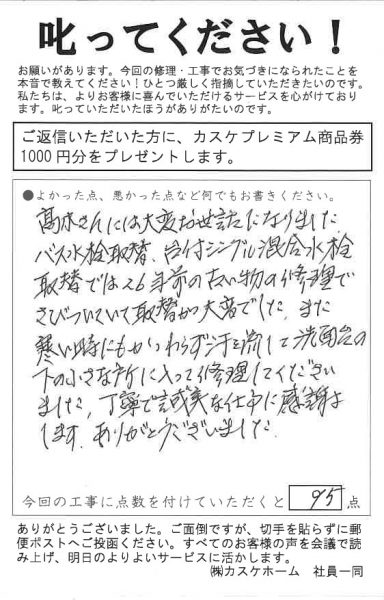 叱ってください！
お願いがあります。今回の修理・工事でお気づきになられたことを
本音で教えてください！ひとつ厳しく指摘していただきたいのです。
私たちは、よりお客様に喜んでいただけるサービスを心がけており
ます。叱っていただいたほうがありがたいのです。
ご返信いただいた方に、カスケプレミアム商品券
1000円分をプレゼントします。
●よかった点、悪かった点など何でもお書きください。
髙木さんには大変お世話になりました
バス水栓取替、台付シングル混合水栓
取替では26年前の古い物の修理で
さびついていて取替が大変でした。また
寒い時にもかかわらず汗を流して洗面台の
下の小さな所に入って修理してください
ました。丁寧で誠実な仕事に感謝
します。ありがとうございました。
今回の工事に点数を付けていただくと 95 点
ありがとうございました。ご面倒ですが、切手を貼らずに郵
便ポストへご投函ください。すべてのお客様の声を会議で読
み上げ、明日のよりよいサービスに活かします。
㈱カスケホーム 社員一同